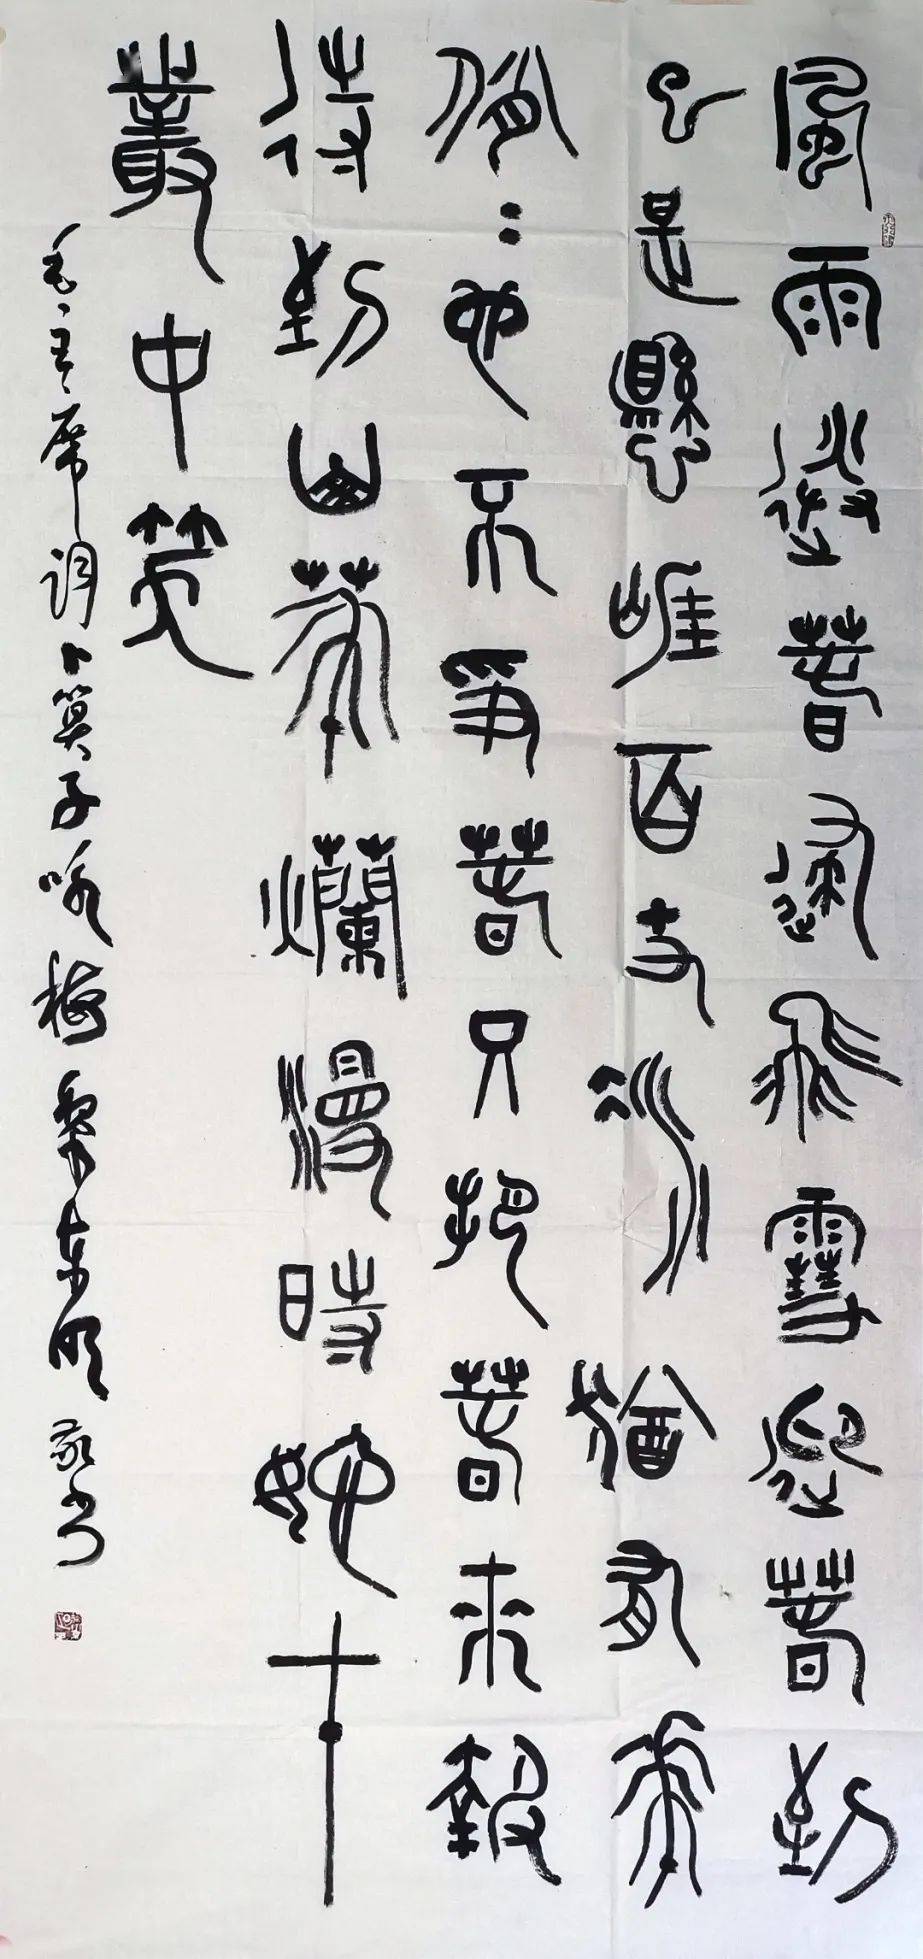 風雨送春歸飛雪迎春到
已是懸崖百丈冰猶有花
俏〻也不爭春只把春來報
待到山花爛漫時她在
叢中笑
毛主席词卜算子咏梅 黎东明 敬书